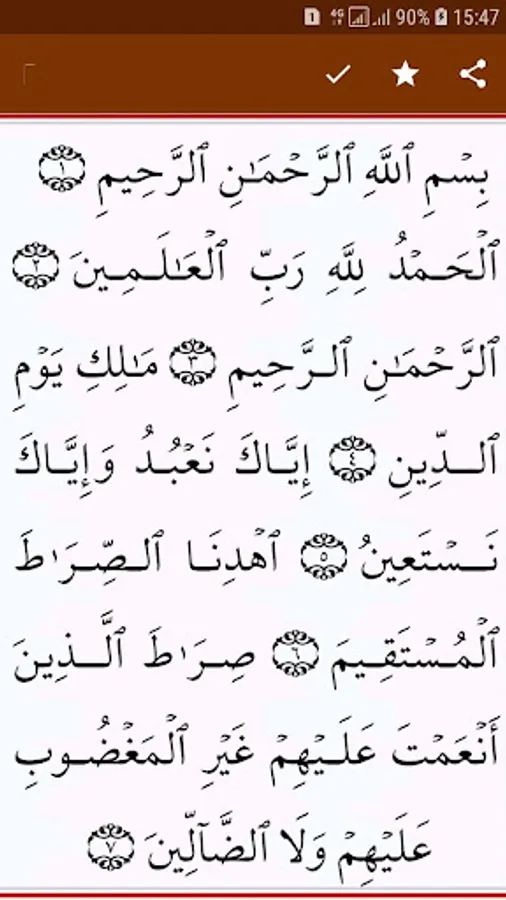 4G 90% 15:47
بِسْمِ ٱللَّهِ ٱلرَّحْمَـٰنِ ٱلرَّحِيمِ ١
ٱلْحَـمْدُ لِلَّهِ رَبِّ ٱلْعَـٰلَـمِـينَ ٢
ٱلرَّحْمَـٰنِ ٱلـرَّحِيمِ ٣ مَـٰلِكِ يَوْمِ
ٱلـدِّينِ ٤ إِيَّـاكَ نَعْبُـدُ وَإِيَّـاكَ
نَـسْتَعِينُ ٥ ٱهْدِنَـا ٱلـصِّـرَٰطَ
ٱلْمُـسْتَقِـيمَ ٦ صِـرَٰطَ ٱلَّـذِينَ
أَنْعَمْتَ عَلَـيْهِمْ غَيْرِ ٱلْمَغْضُـوبِ
عَلَيْهِمْ وَلَا ٱلضَّآلِّينَ ٧